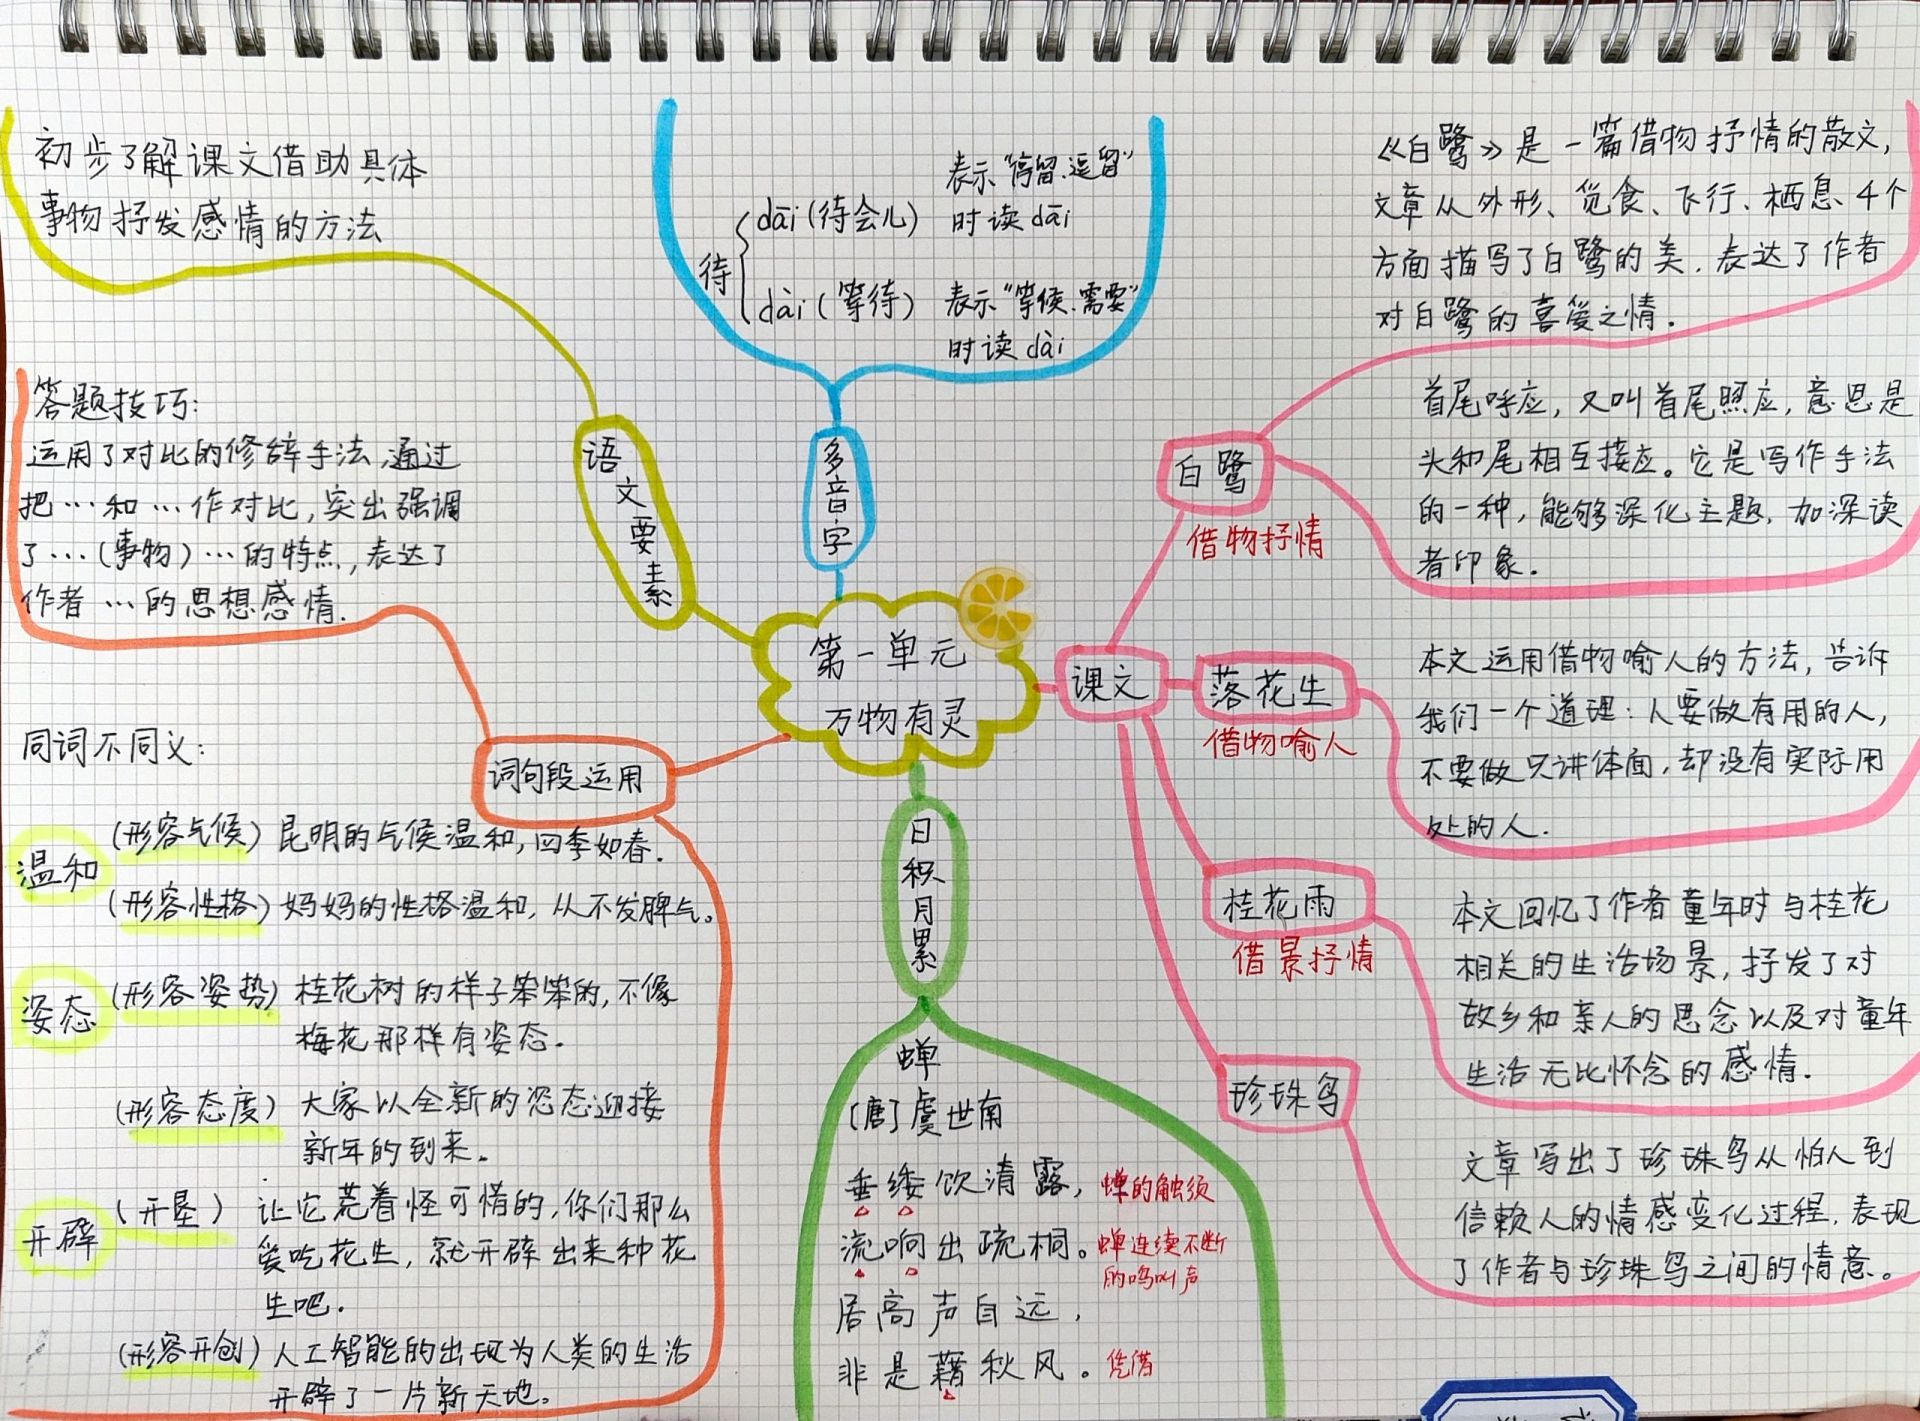 第一单元
万物有灵
语文要素
初步了解课文借助具体
事物抒发感情的方法
多音字
待
dāi(待会儿)
表示“停留、逗留”
时读dāi
dài(等待)
表示“等候、需要”
时读dài
课文
白鹭
借物抒情
《白鹭》是一篇借物抒情的散文,
文章从外形、觅食、飞行、栖息、4个
方面描写了白鹭的美.表达了作者
对白鹭的喜爱之情.
首尾呼应,又叫首尾照应,意思是
头和尾相互接应。它是写作手法
的一种,能够深化主题,加深读
者印象.
落花生
借物喻人
本文运用借物喻人的方法,告诉
我们一个道理:人要做有用的人,
不要做只讲体面,却没有实际用
处的人.
桂花雨
借景抒情
本文回忆了作者童年时与桂花
相关的生活场景,抒发了对
故乡和亲人的思念以及对童年
生活无比怀念的感情.
珍珠鸟
文章写出了珍珠鸟从怕人到
信赖人的情感变化过程,表现
了作者与珍珠鸟之间的情意。
日积月累
蝉
[唐]虞世南
垂緌饮清露,蝉的触须
流响出疏桐。蝉连续不断
的鸣叫声
居高声自远,
非是藉秋风。凭借
词句段运用
答题技巧:
运用了对比的修辞手法,通过
把…和…作对比,突出强调
了…(事物)…的特点,表达了
作者…的思想感情.
同词不同义:
温和
(形容气候)昆明的气候温和,四季如春.
(形容性格)妈妈的性格温和,从不发脾气。
姿态
(形容姿势)桂花树的样子笨笨的,不像
梅花那样有姿态.
(形容态度)大家以全新的姿态迎接
新年的到来。
开辟
(开垦)让它荒着怪可惜的,你们那么
爱吃花生,就开辟出来种花
生吧.
(形容开创)人工智能的出现为人类的生活
开辟了一片新天地。